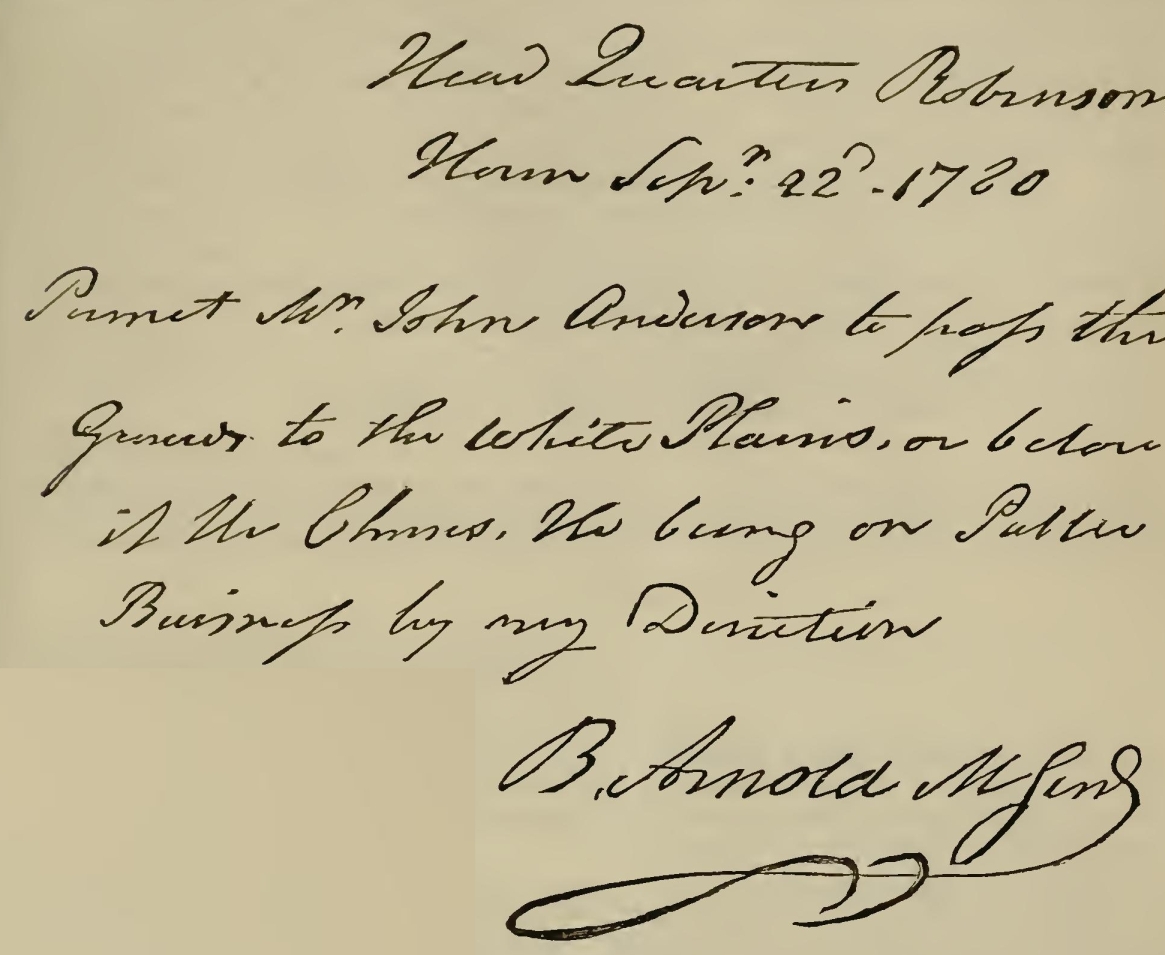 Head Quarters Robinson
House Sepr. 22d. 1780
Permit Mr. John Anderson to pass the
Guards to the White Plains, or below
if He Chuses. He being on Public
Buisness by my Direction
B. Arnold M Genl